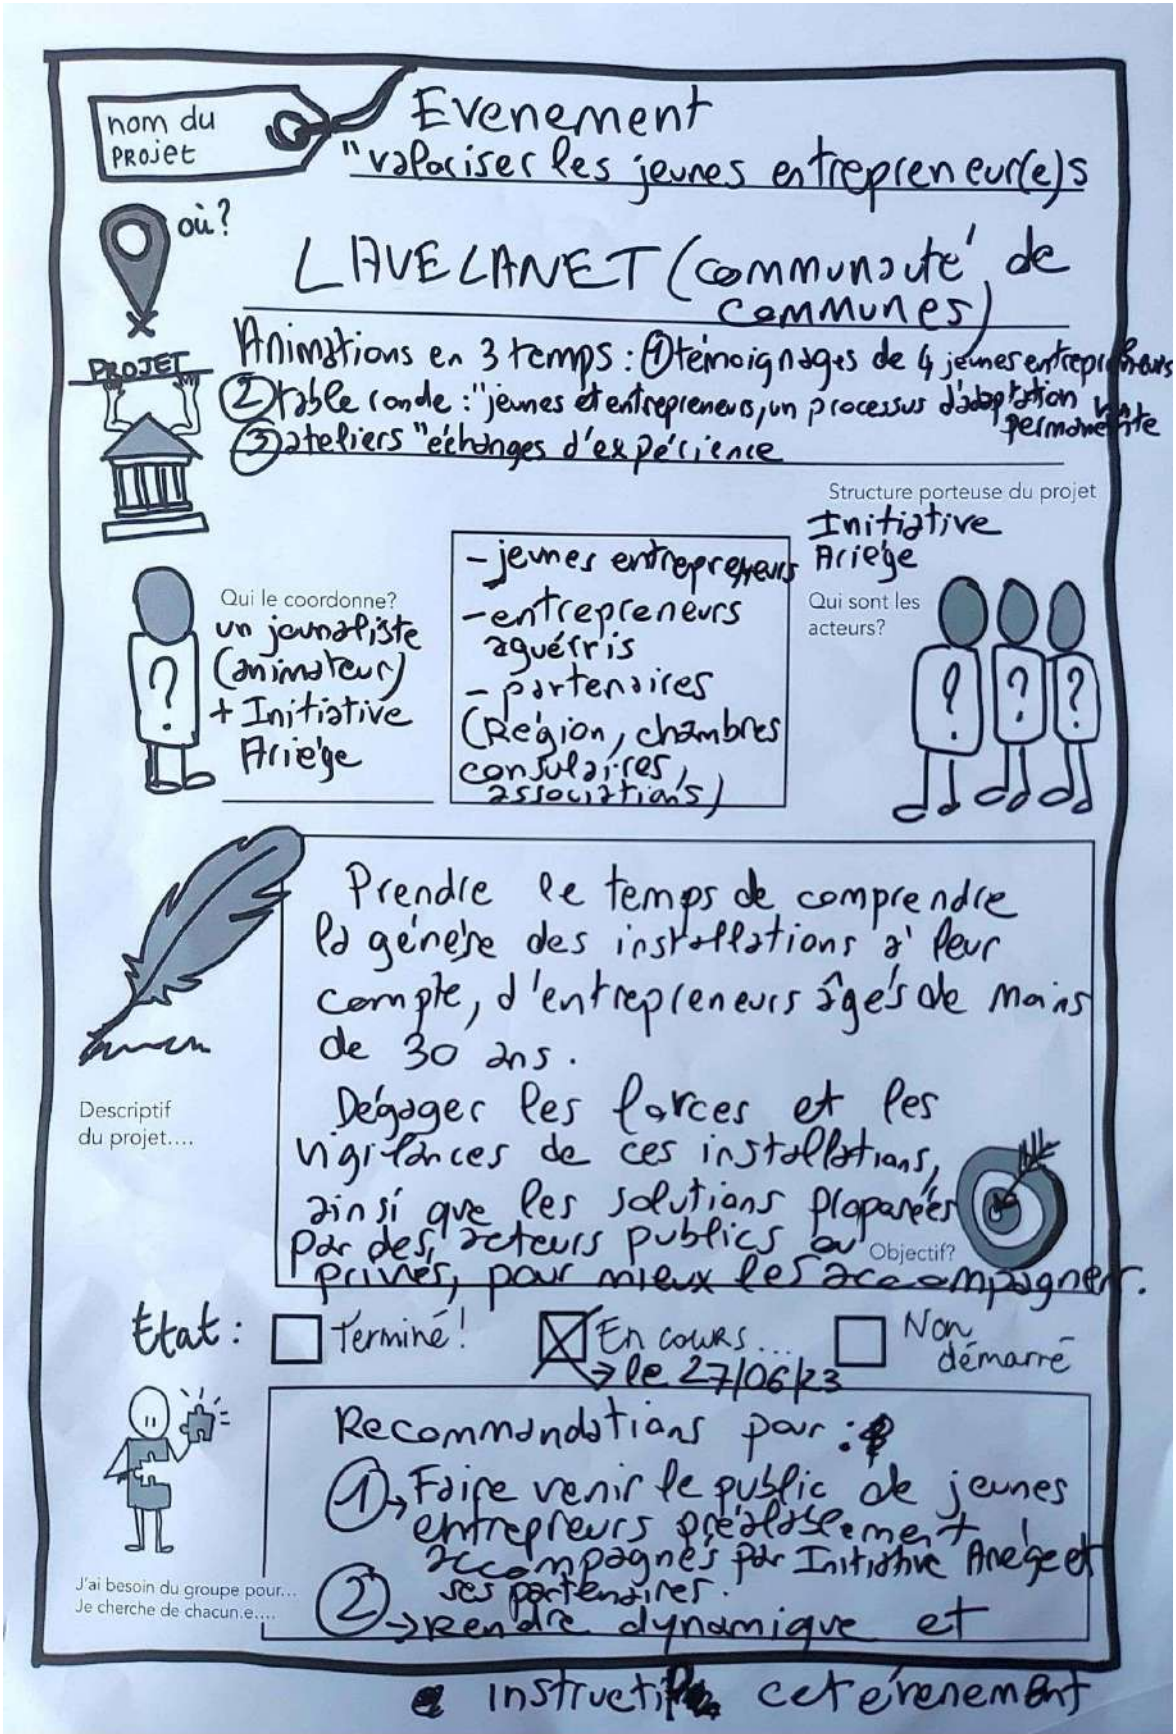 nom du
PROJet
Evenement
"valoriser les jeunes entrepreneur(e)s
où?
LAVELANET (communauté de
communes)
PROJET
Animations en 3 temps : ① témoignages de 4 jeunes entrepreneurs
② table ronde : "jeunes et entrepreneurs, un processus d'adaptation
permanente
③ ateliers "échanges d'expérience
Structure porteuse du projet
Initiative
Ariège
Qui le coordonne?
un journaliste
(animateur)
+ Initiative
Ariège
- jeunes entrepreneurs
- entrepreneurs
aguérris
- partenaires
(Région, chambres
consulaires,
associations)
Qui sont les
acteurs?
? ? ? ?
Prendre le temps de comprendre
la génèse des installations à leur
compte, d'entrepreneurs âgés de moins
de 30 ans.
Dégager les forces et les
vigilances de ces installations,
ainsi que les solutions proposées
par des acteurs publics ou
privés, pour mieux les accompagner.
Descriptif
du projet....
Objectif?
Etat : Terminé! En cours... Non
démarré
→ le 27/06/23
Recommandations pour :
① → Faire venir le public de jeunes
entrepreurs préalablement
accompagnés par Initiative Ariège et
ses partenaires.
② → Rendre dynamique et
instructif cet évenement
J'ai besoin du groupe pour...
Je cherche de chacun.e....